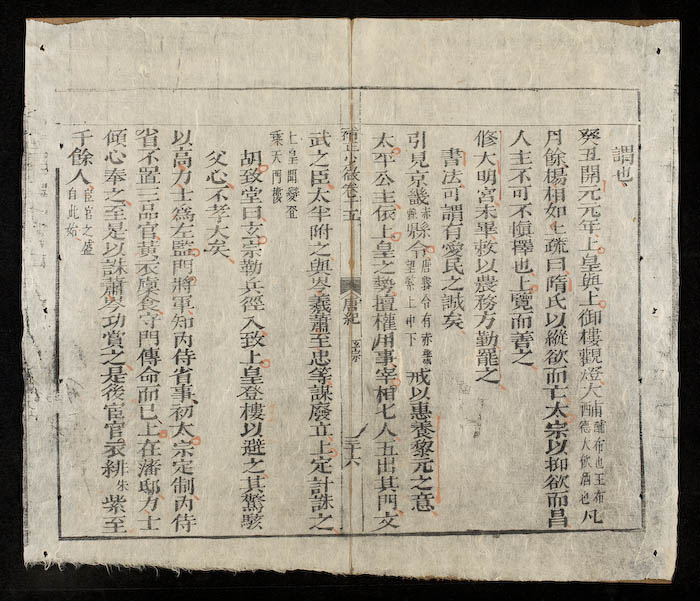 謂也
癸丑開元元年上皇與上御樓觀燈大酺酺布也王布德大飲酒也凡
月餘楊相如上疏曰隋氏以縱欲而亡太宗以抑欲而昌
人主不可不愼擇也上覽而善之
修大明宮未畢敕以農務方勤罷之
書法可謂有愛民之誠矣
引見京畿縣令戒以惠養黎元之意
太平公主依上皇之勢擅權用事宰相七人五出其門文
卷十五
唐紀
玄宗
三十六
武之臣太半附之與岑羲蕭至忠等謀廢立上定計誅之
上皇聞變登承天門樓
胡致堂曰玄宗勒兵徑入致上皇登樓以避之其驚駭
父心不孝大矣
以高力士爲左監門將軍知內侍省事初太宗定制內侍
省不置三品官黃衣廩食守門傳命而已上在藩邸力士
傾心奉之至是以誅蕭岑功賞之是後宦官衣緋朱紫至
千餘人宦官之盛自此始